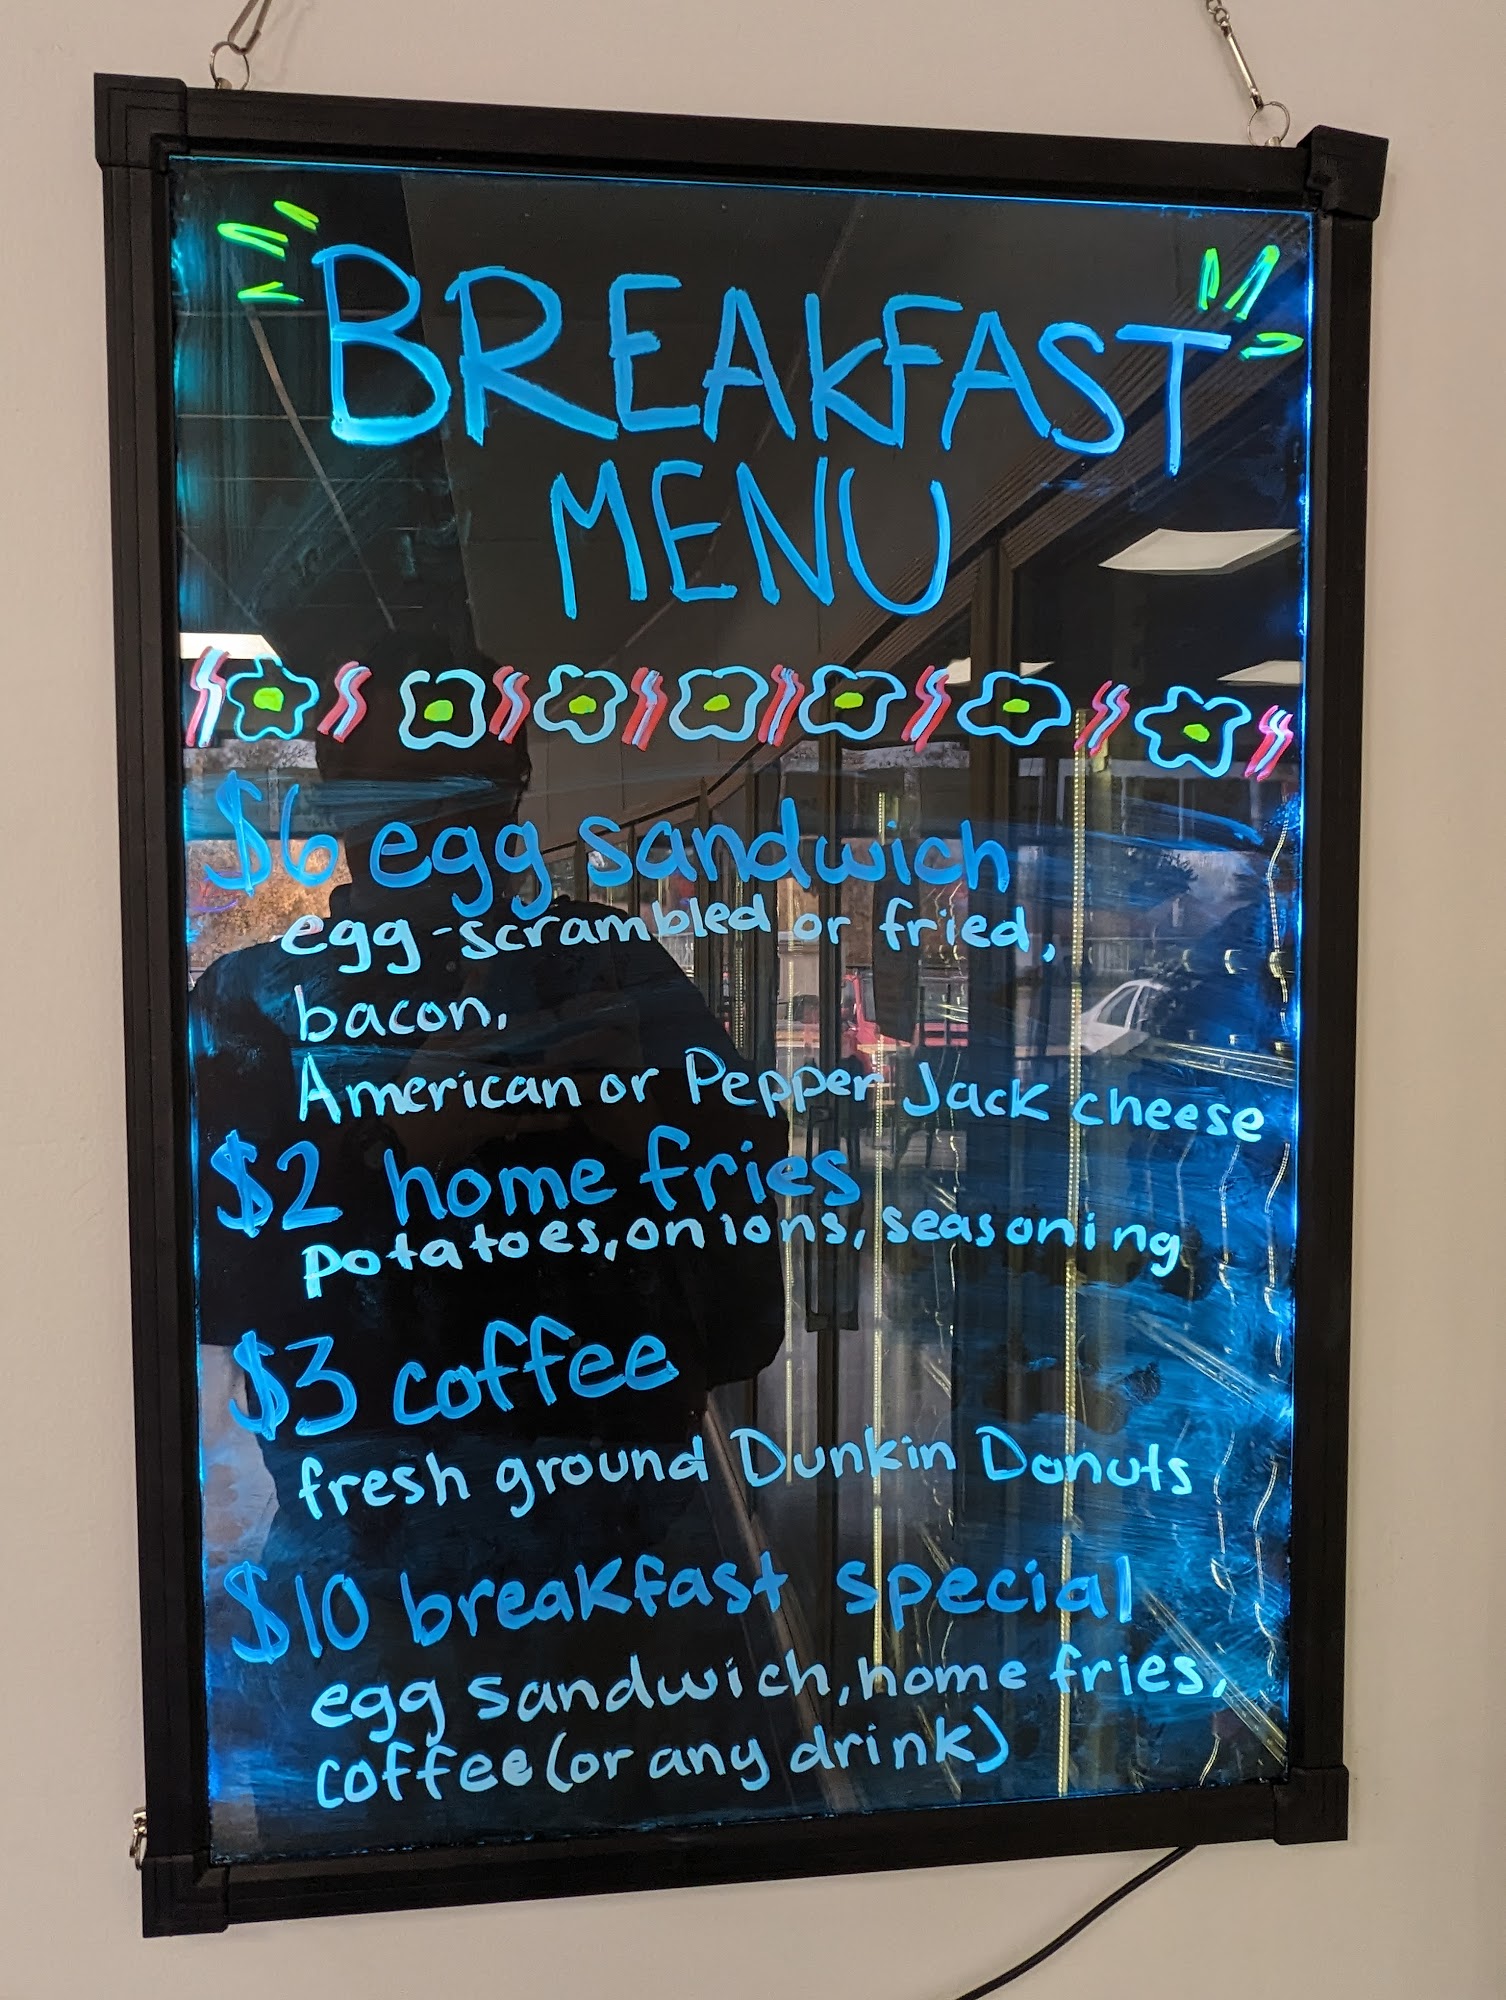 BREAKFAST
MENU
$6 egg sandwich
egg-scrambled or fried,
bacon,
American or Pepper Jack cheese
$2 home fries
potatoes, onions, seasoning
$3 coffee
fresh ground Dunkin Donuts
$10 breakfast special
egg sandwich, home fries,
coffee (or any drink)